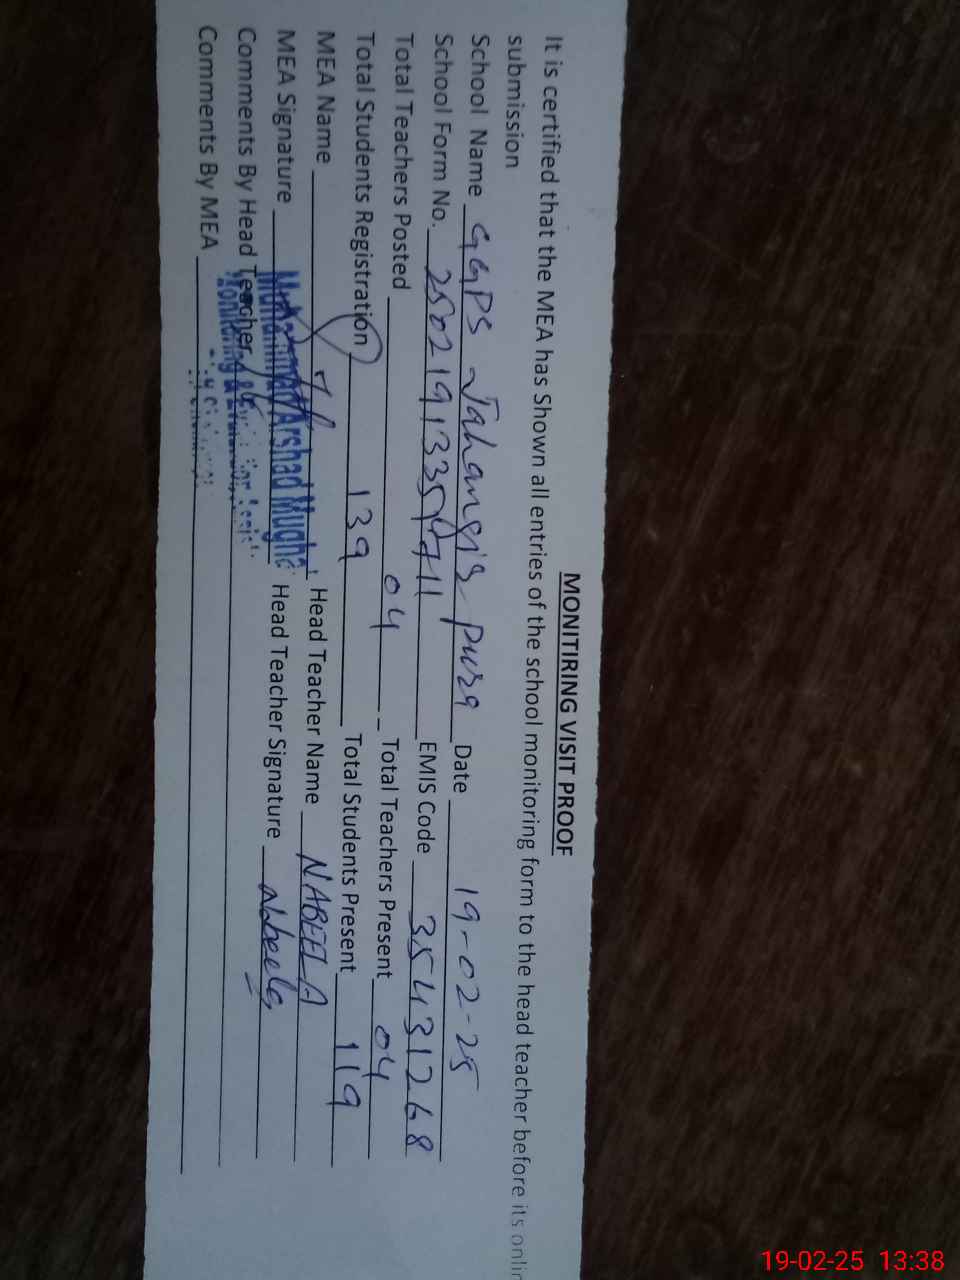 MONITIRING VISIT PROOF
It is certified that the MEA has Shown all entries of the school monitoring form to the head teacher before its onlin
submission
School Name GGPS Jahangir pura Date 19-02-25
School Form No. EMIS Code 35431268
Total Teachers Posted 04 Total Teachers Present 04
Total Students Registration 139 Total Students Present 119
MEA Name Head Teacher Name NABEELA
MEA Signature Muhammad Arshad Mughal Head Teacher Signature Nabeela
Comments By Head Teacher Monitoring &
Comments By MEA
19-02-25 13:38